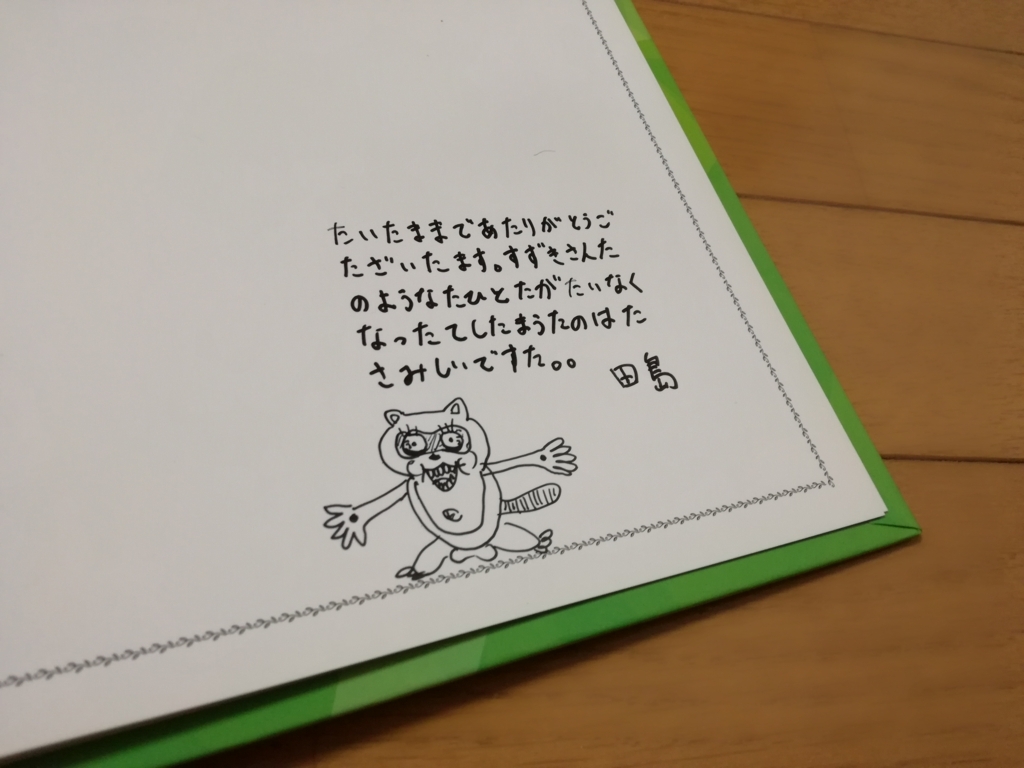 たいたままであたりがとうご
たざいたます。すずきさんた
のようなたひとたがたいなく
なったてしたまうたのはた
さみしいですた。。
田島